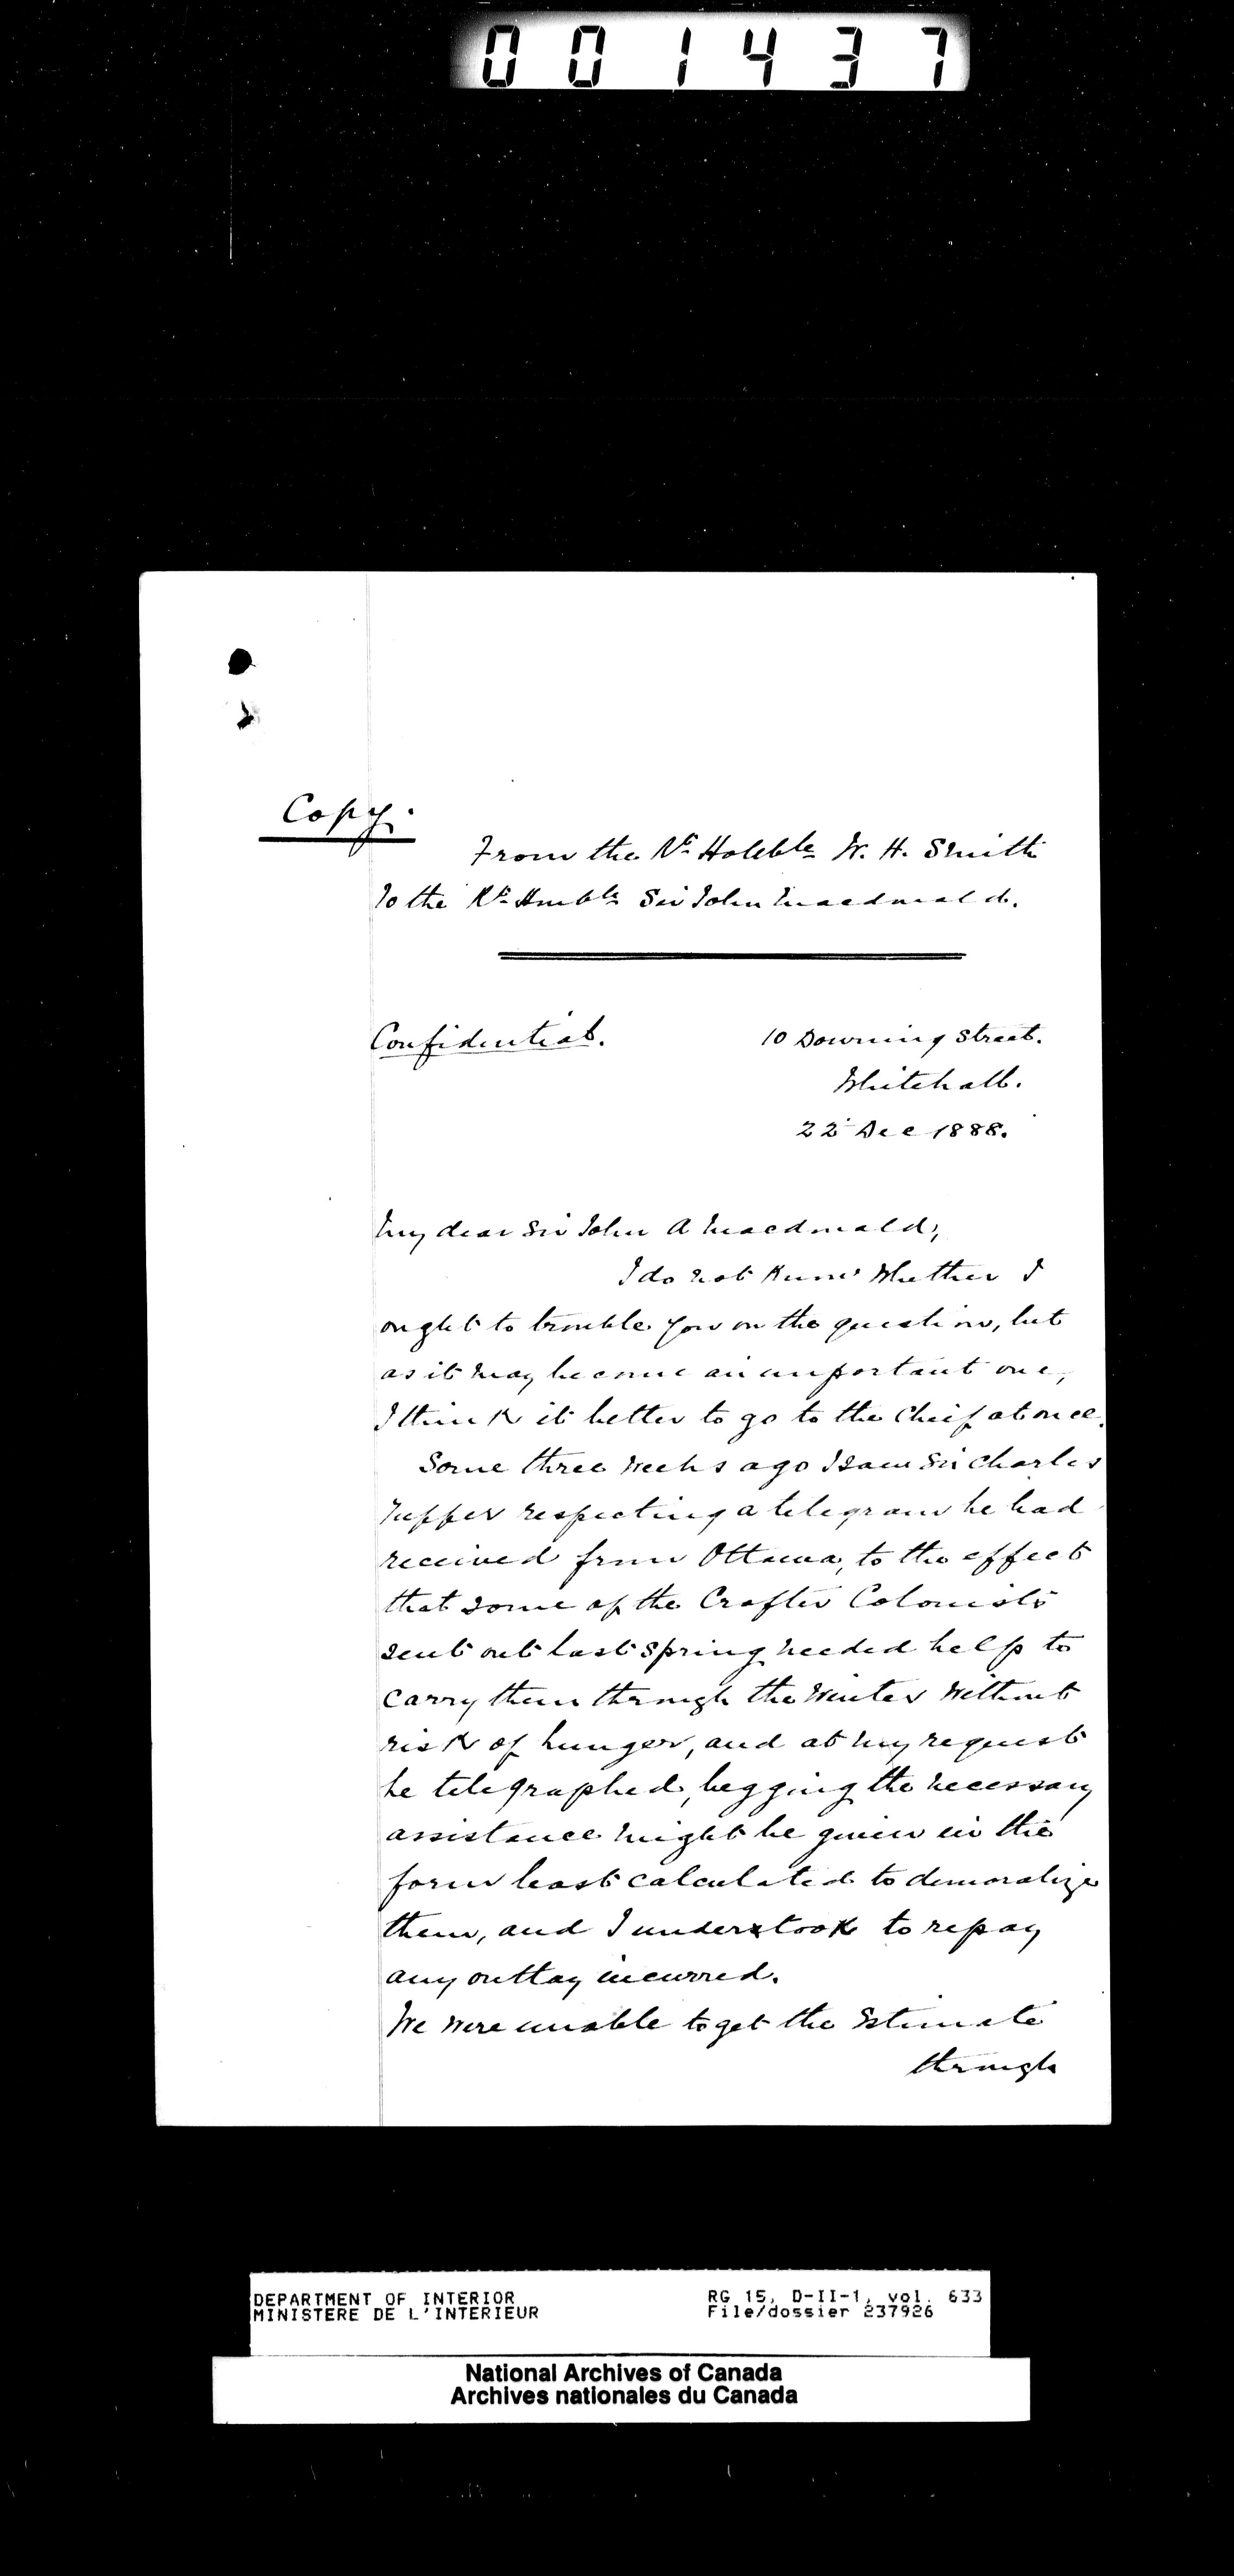 001437
Copy.
From the Rt. Honble W. H. Smith
To the Rt. Honble Sir John Macdonald.
Confidential.
10 Downing Street.
Whitehall.
22 Dec 1888.
My dear Sir John A Macdonald,
I do not know whether I
ought to trouble you on the question, but
as it may become an important one,
I think it better to go to the Cheif at once.
Some three weeks ago I saw Sir Charles
Tupper respecting a telegram he had
received from Ottawa, to the effect
that some of the Crofter Colonists
sent out last spring needed help to
carry them through the Winter without
risk of hunger, and at my request
he telegraphed, begging the necessary
assistance might be given in the
form least calculated to demoralize
them, and I undertook to repay
any outlay incurred.
We were unable to get the Estimate
through
DEPARTMENT OF INTERIOR
MINISTERE DE L'INTERIEUR
RG 15, D-II-1, vol. 633
File/dossier 237926
National Archives of Canada
Archives nationales du Canada